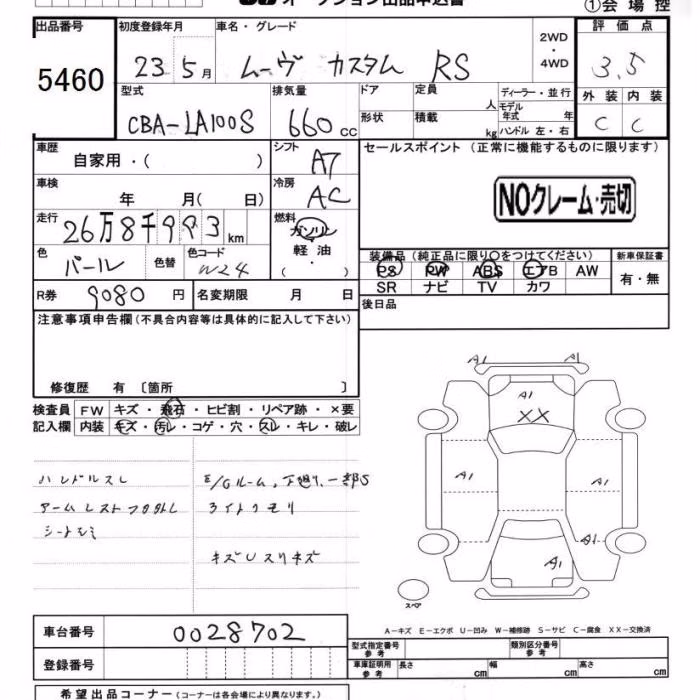 オークション出品申込書
①会場控
出品番号 初度登録年月 車名・グレード 評価点
5460 23 5月 ムーヴ カスタム RS 2WD・4WD 3.5
型式 排気量 ドア 定員 人 ディーラー・並行 外装 内装
CBA-LA100S 660cc 形状 積載 kg モデル年式 年 ハンドル 左・右 C C
車歴 自家用・( ) シフト A7 セールスポイント(正常に機能するものに限ります)
車検 年 月( 日) 冷房 AC NOクレーム・売切
走行 26万8千993km 燃料 ガソリン 軽油・( )
色 パール 色替 色コード W24 装備品(純正品に限り○をつけてください) 新車保証書
PS PW ABS エアB AW 有・無
SR ナビ TV カワ
R券 9080円 名変期限 月 日 後日品
注意事項申告欄(不具合内容等は具体的に記入して下さい)
修復歴 有〔箇所 〕
検査員 FW キズ・飛石・ヒビ割・リペア跡・×要
記入欄 内装 キズ・汚レ・コゲ・穴・スレ・キレ・破レ
ハンドルスレ E/Gルーム、下廻り、一部S
アームレスト
ライトクモリ
キズUスリキズ
A1 A1
A1
XX
A1 A1
A1
A1
スペア
A-キズ E-エクボ U-凹み W-補修跡 S-サビ C-腐食 XX-交換済
車台番号 0028702 型式指定番号 参考 類別区分番号 参考
登録番号 車庫証明用 参考 長さ cm 幅 cm 高さ cm
希望出品コーナー(コーナーは各会場により異なります。)